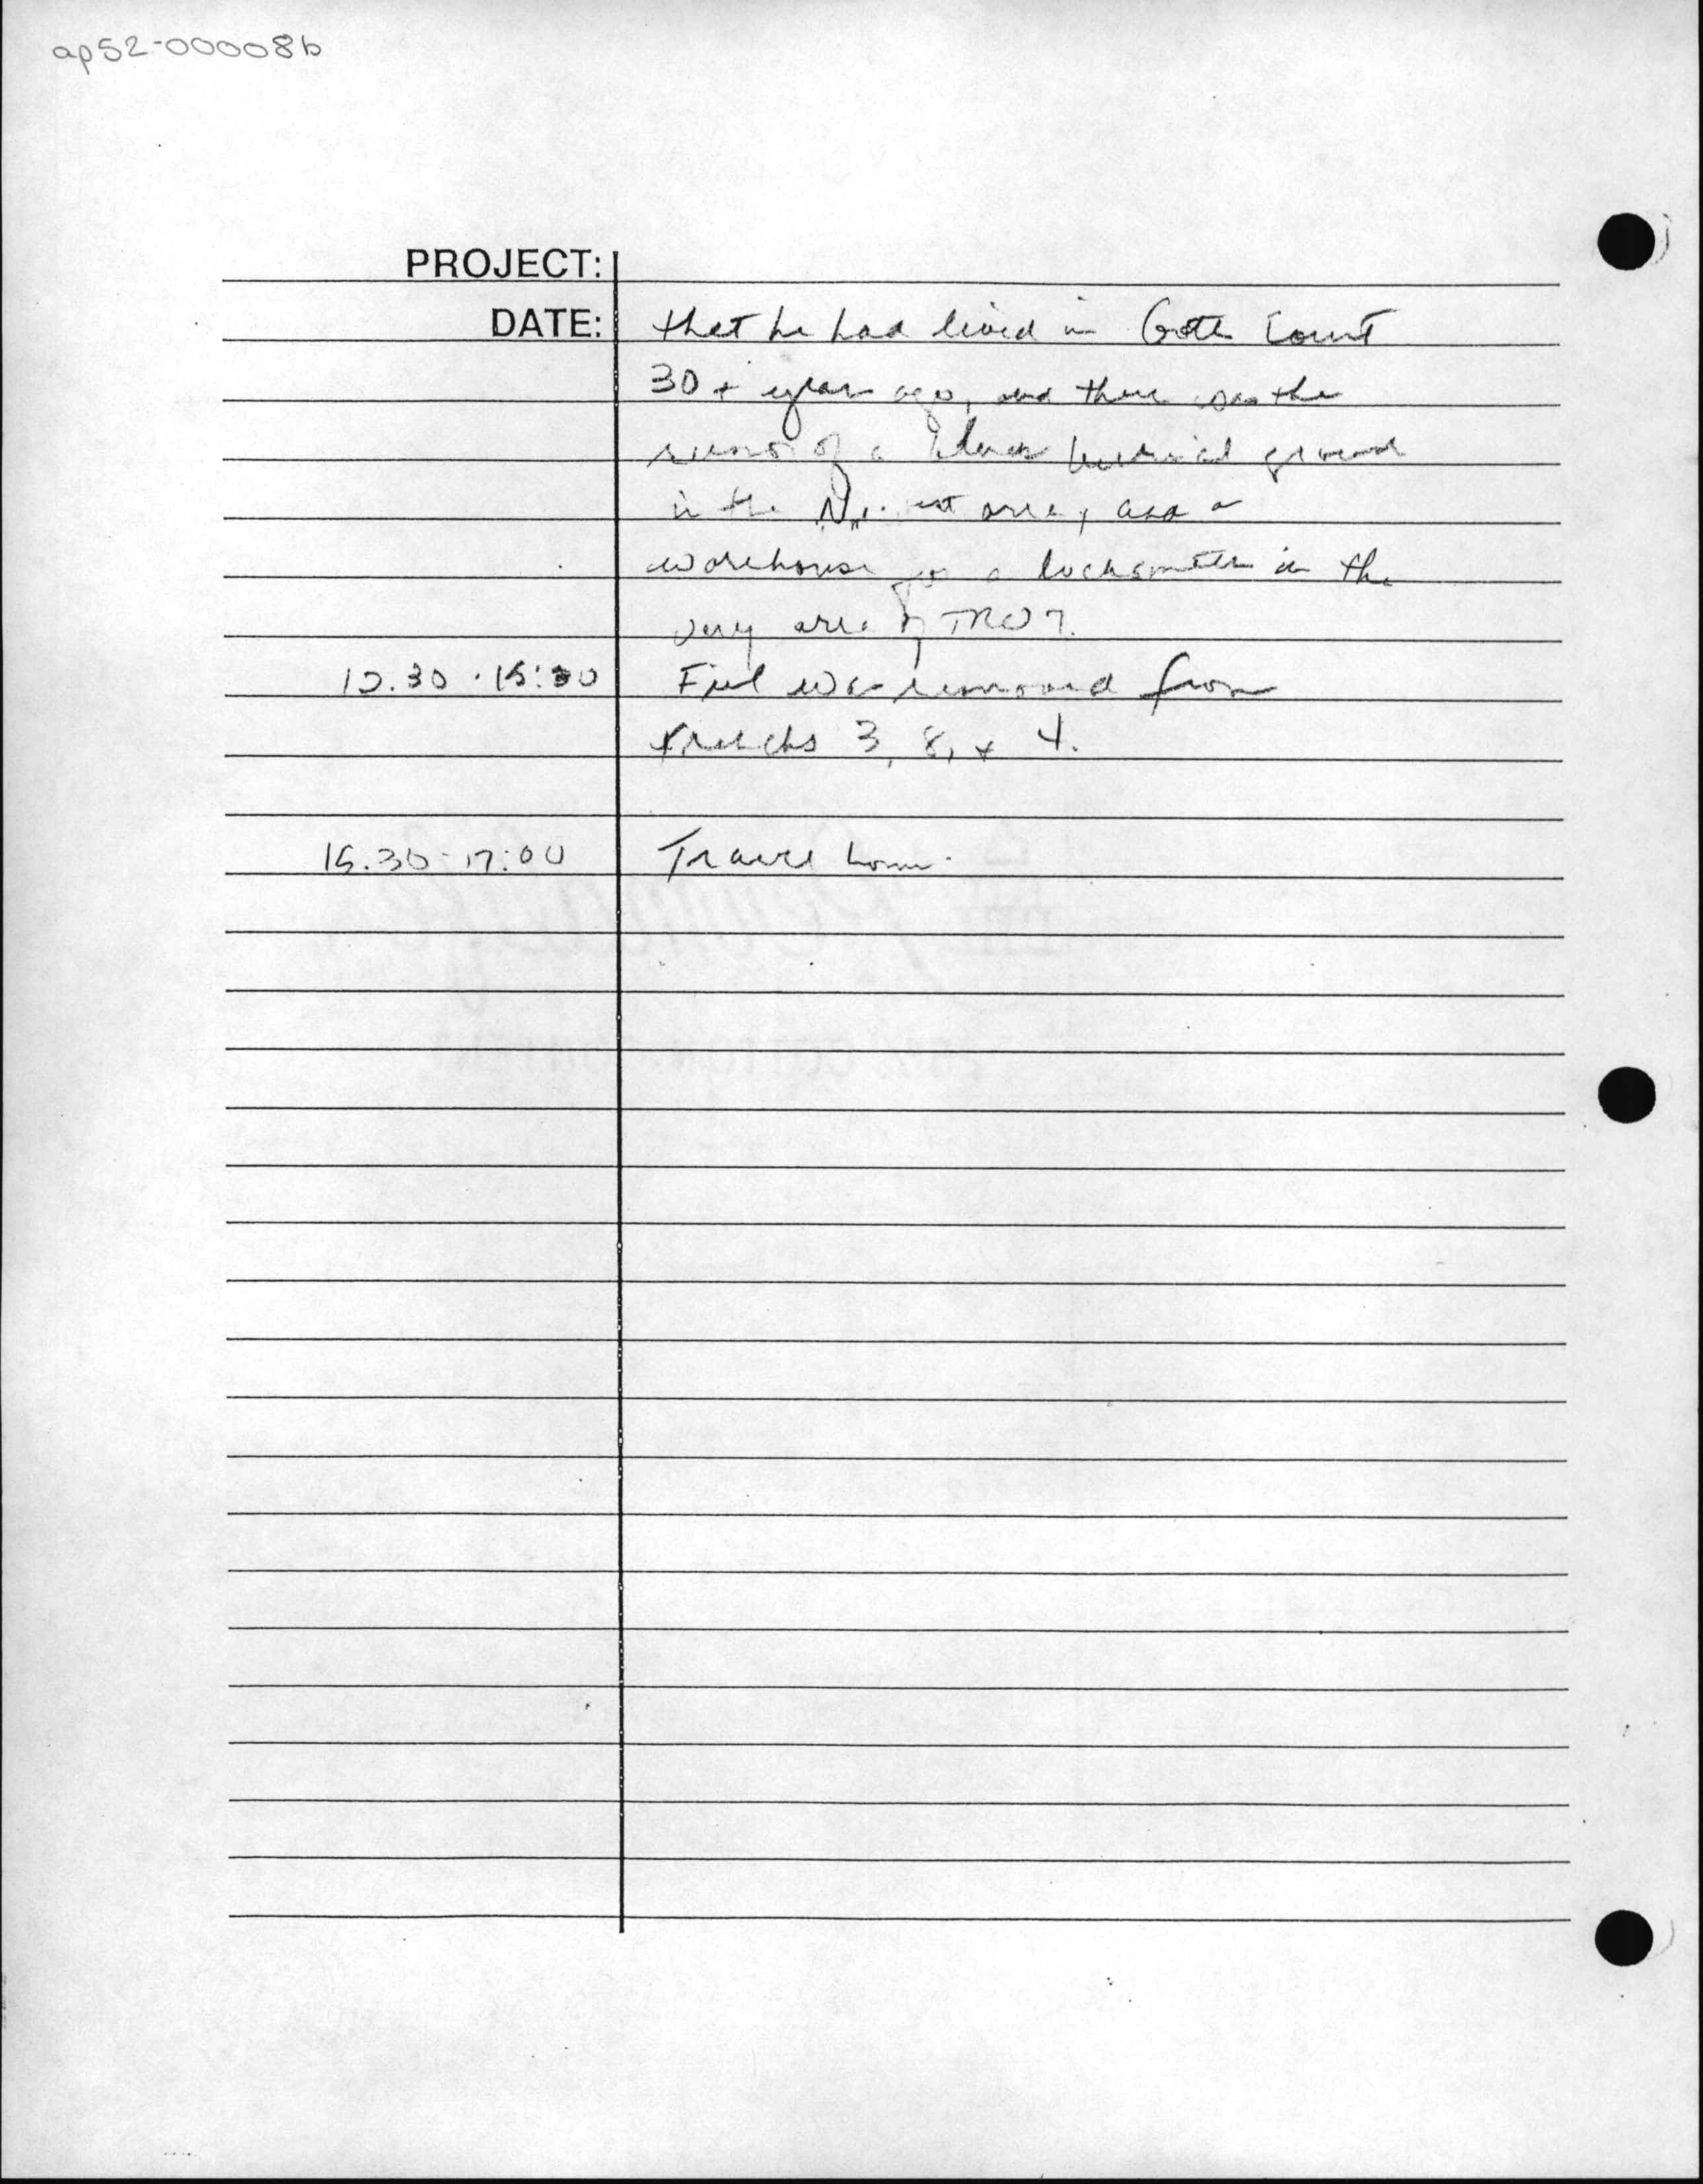 ap52-00008b
PROJECT:
DATE: that he had lived in Goth Court
30 + year ago, and there was the
rumor of a burial ground
in the area, and a
warehouse for a locksmith in the
very area of TR07.
12.30 - 15:30 Fill was removed from
trenchs 3, 8, + 4.
15.30-17:00 Travel home.